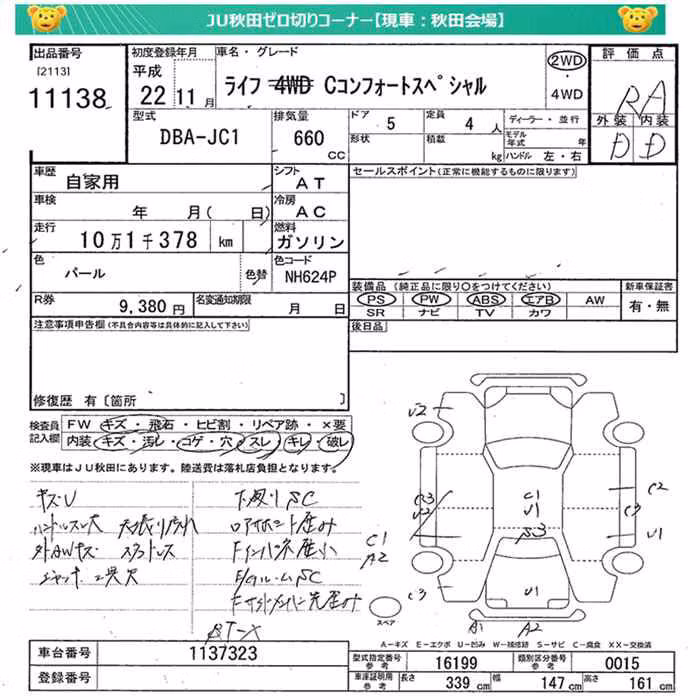 JU秋田ゼロ切りコーナー【現車:秋田会場】
出品番号
[2113]
11138
初度登録年月
平成
22 11月
車名・グレード
ライフ 4WD Cコンフォートスペシャル
2WD
・
4WD
評価点
RA
外装 内装
D D
型式
DBA-JC1
排気量
660
CC
ドア 5
形状
定員 4 人
積載 kg
ディーラー・並行
モデル年式 年
ハンドル 左・右
車歴
自家用
シフト
AT
セールスポイント(正常に機能するものに限ります)
車検
年 月( 日)
冷房
AC
走行
10万1千378 km
燃料
ガソリン
色
パール
色替
色コード
NH624P
装備品 (純正品に限り○をつけてください)
PS PW ABS エアB AW
SR ナビ TV カワ
新車保証書
有・無
R券
9,380円
名変通知期限
月 日
後日品
注意事項申告欄(不具合内容等は具体的に記入して下さい)
修復歴 有[箇所 ]
検査員
記入欄
FW キズ・飛石・ヒビ割・リペア跡・×要
内装 キズ・汚レ・コゲ・穴・スレ・キレ・破レ
※現車はJU秋田にあります。陸送費は落札店負担となります。
キズU
下廻りSC
ハンドルスレ大
外AWキズ
スタットレス
U2
C1
U1
S3
C2
C3
U1
C3
U2
C1
A2
C3
U1
スペア
A1
A2
A-キズ E-エクボ U-凹み W-補修跡 S-サビ C-腐食 XX-交換済
車台番号
1137323
登録番号
型式指定番号
参考
16199
類別区分番号
参考
0015
車庫証明用
参考
長さ 339 cm 幅 147 cm 高さ 161 cm